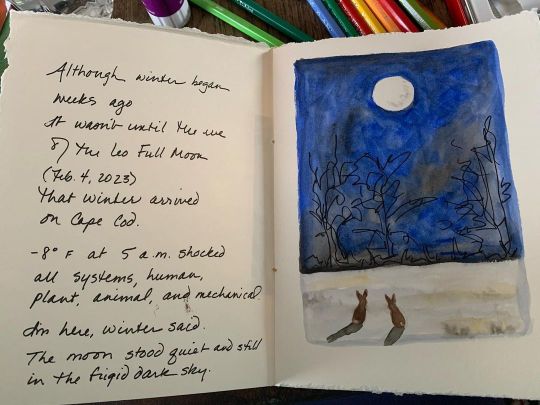 Although winter began
weeks ago
It wasn't until the eve
of the Leo Full Moon
(Feb. 4, 2023)
That winter arrived
on Cape Cod.
-8° F at 5 a.m. shocked
all systems, human,
plant, animal, and mechanical.
I'm here, winter said.
The moon stood quiet and still
in the frigid dark sky.